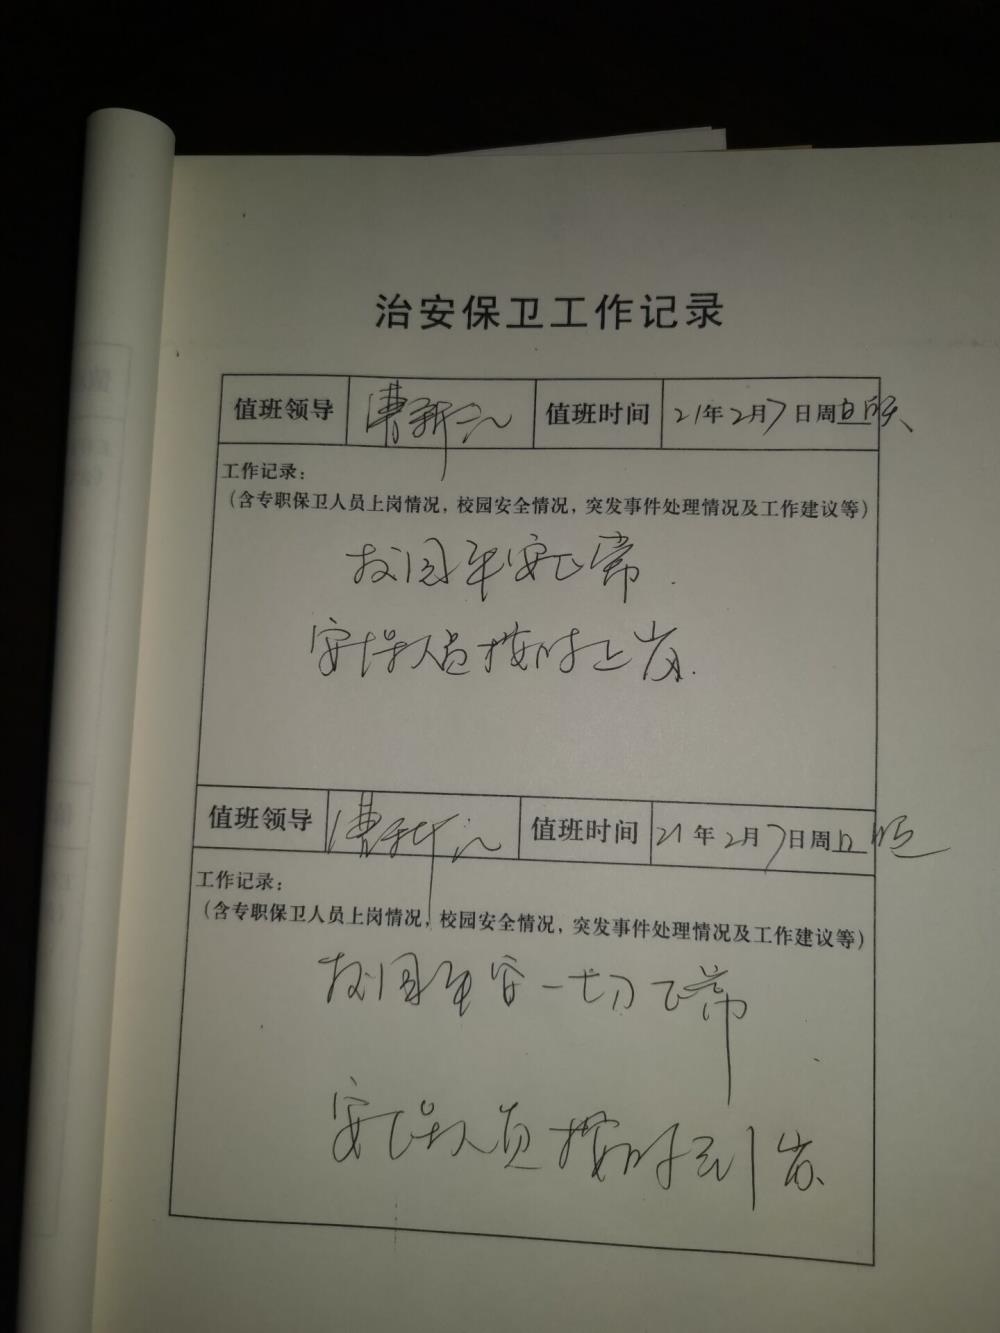 治安保卫工作记录
值班领导 曹新 值班时间 21年2月7日周日
工作记录：
（含专职保卫人员上岗情况，校园安全情况，突发事件处理情况及工作建议等）
校园平安正常.
安保人员按时上岗.
值班领导 曹新 值班时间 21年2月7日周日晚
工作记录：
（含专职保卫人员上岗情况，校园安全情况，突发事件处理情况及工作建议等）
校园平安一切正常
安保人员按时到岗